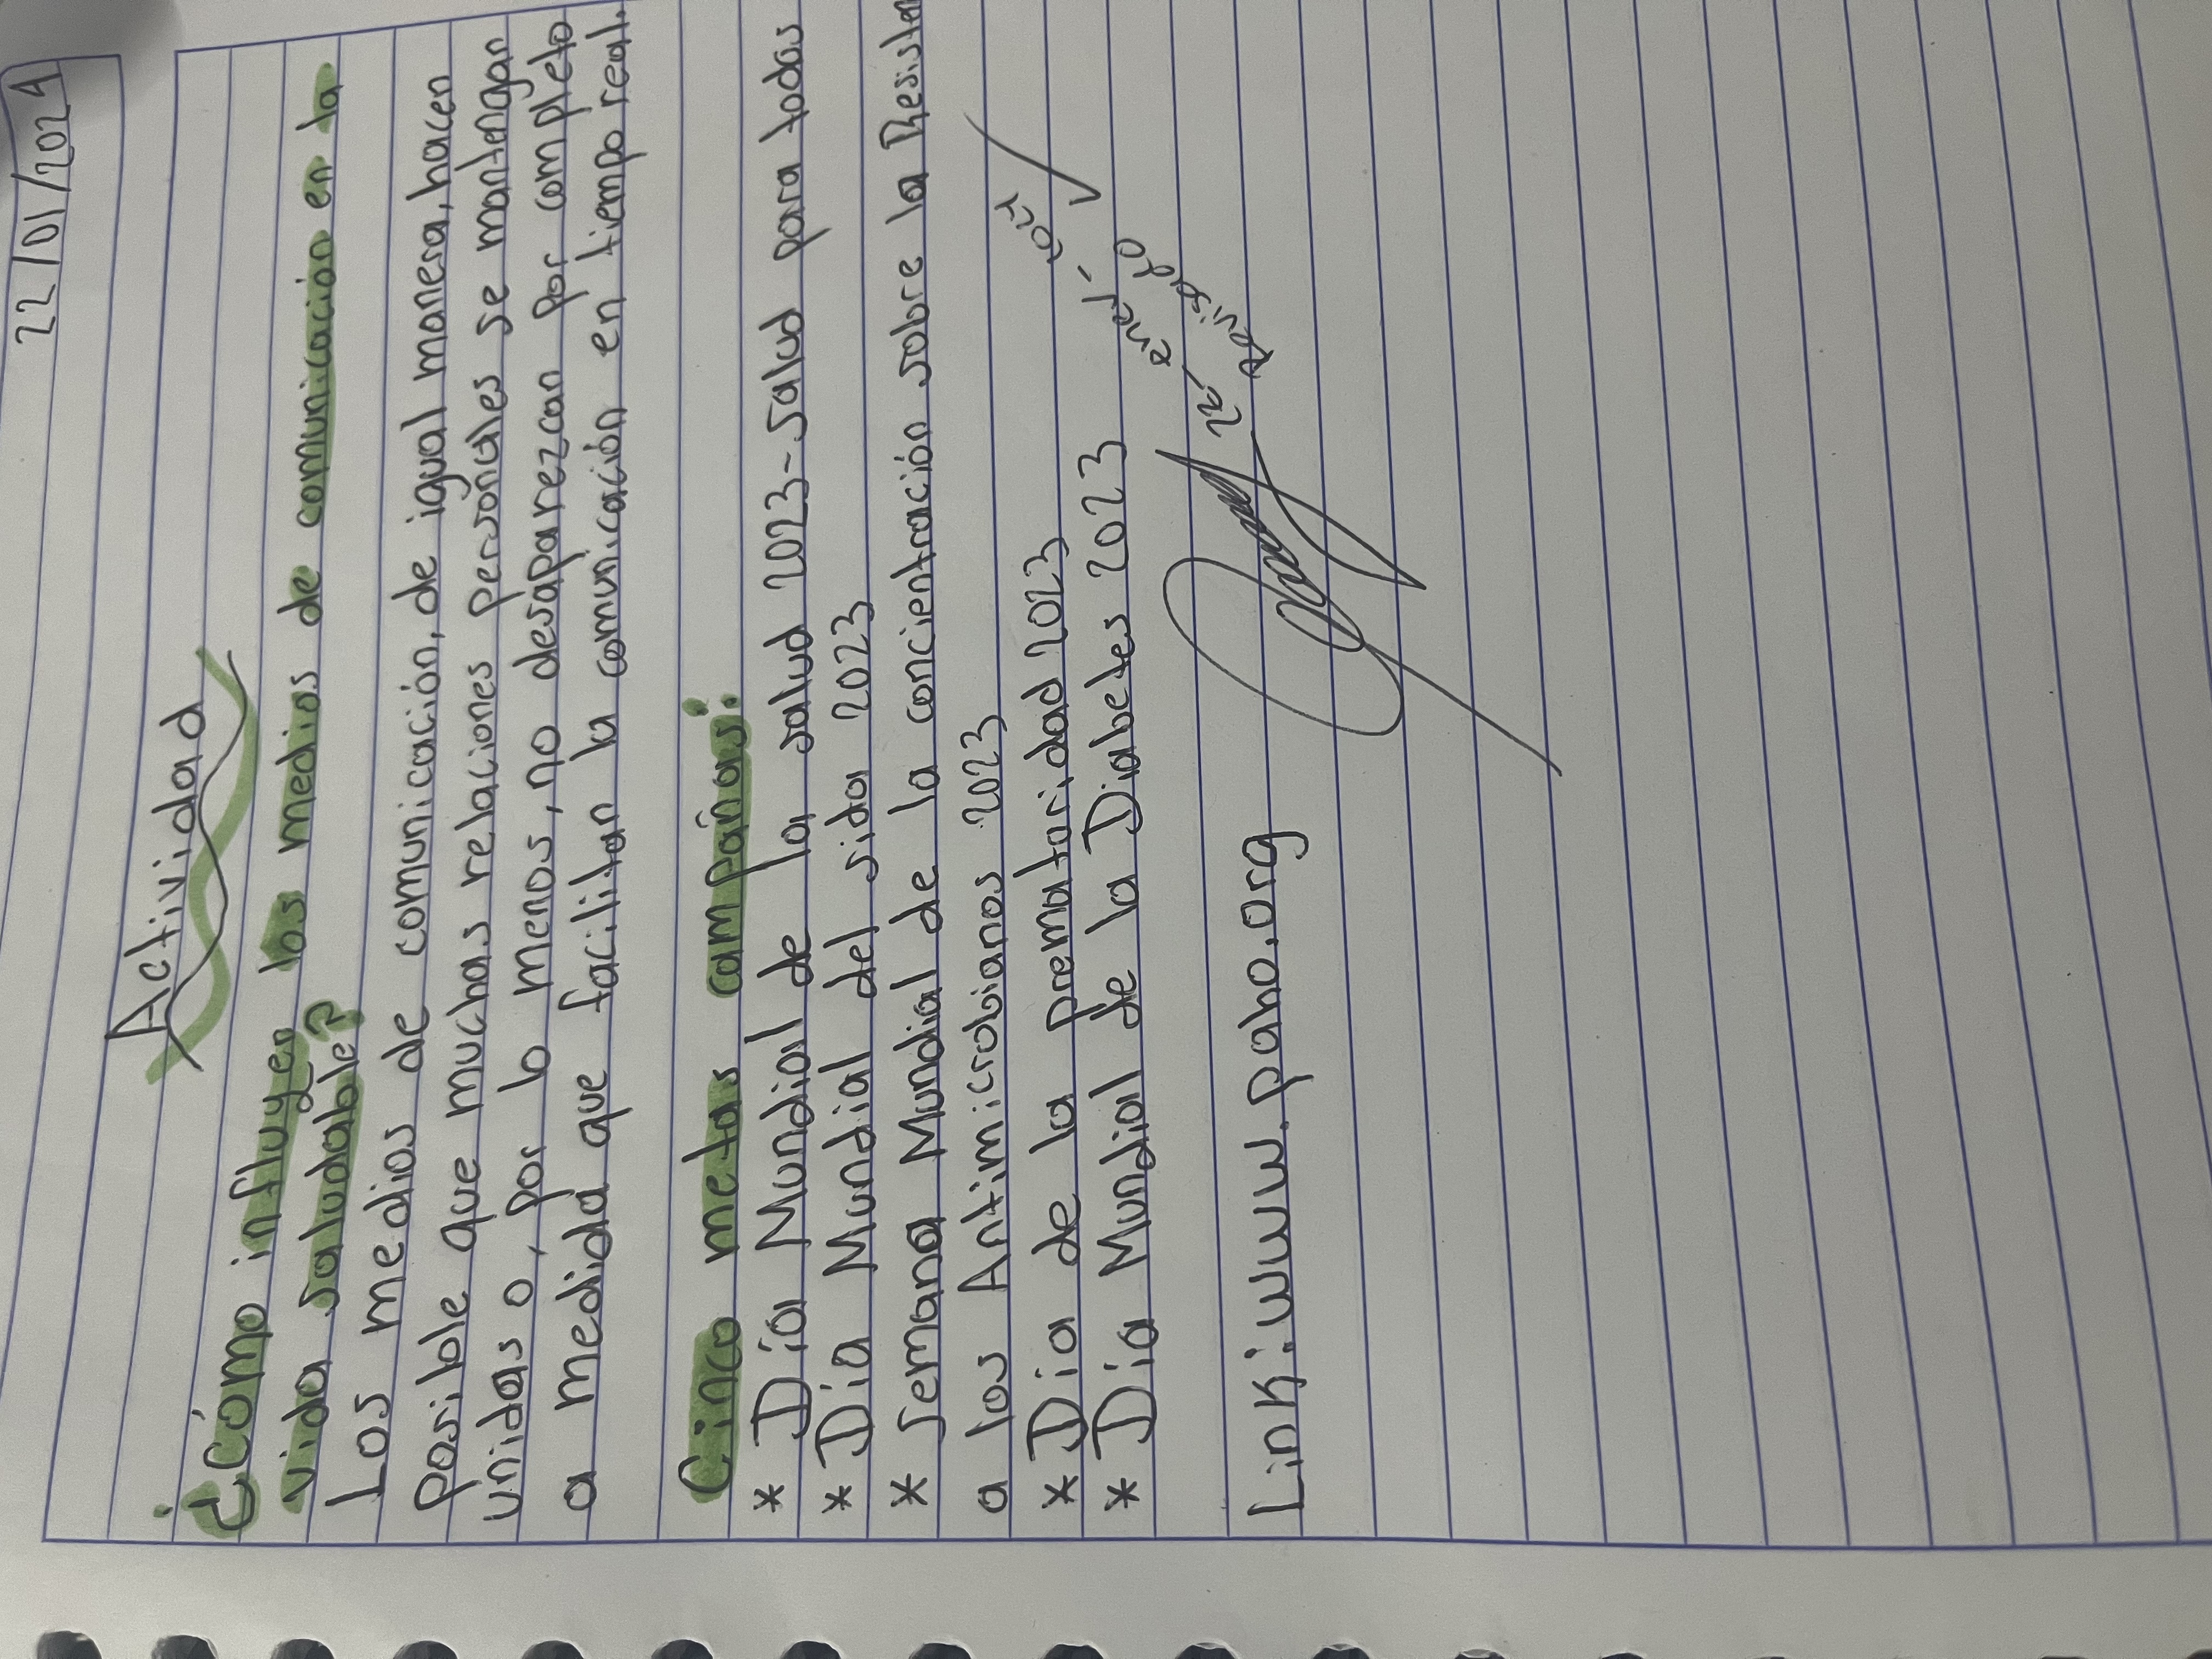 22/01/2024
Actividad
¿Cómo influyen los medios de comunicación en la
vida saludable?
Los medios de comunicación, de igual manera, hacen
posible que muchas relaciones personales se mantengan
unidas o, por lo menos, no desaparezcan por completo
a medida que facilitan la comunicación en tiempo real.
Cinco metas campañas:
* Día Mundial de la salud 2023-salud para todos
* Día Mundial del sida 2023
* Semana Mundial de la concientración sobre la Resisten
a los Antimicrobianos 2023
* Dia de la prematoridad 2023
* Día Mundial de la Diabetes 2023
Revisado
26 ene
Link: www.paho.org